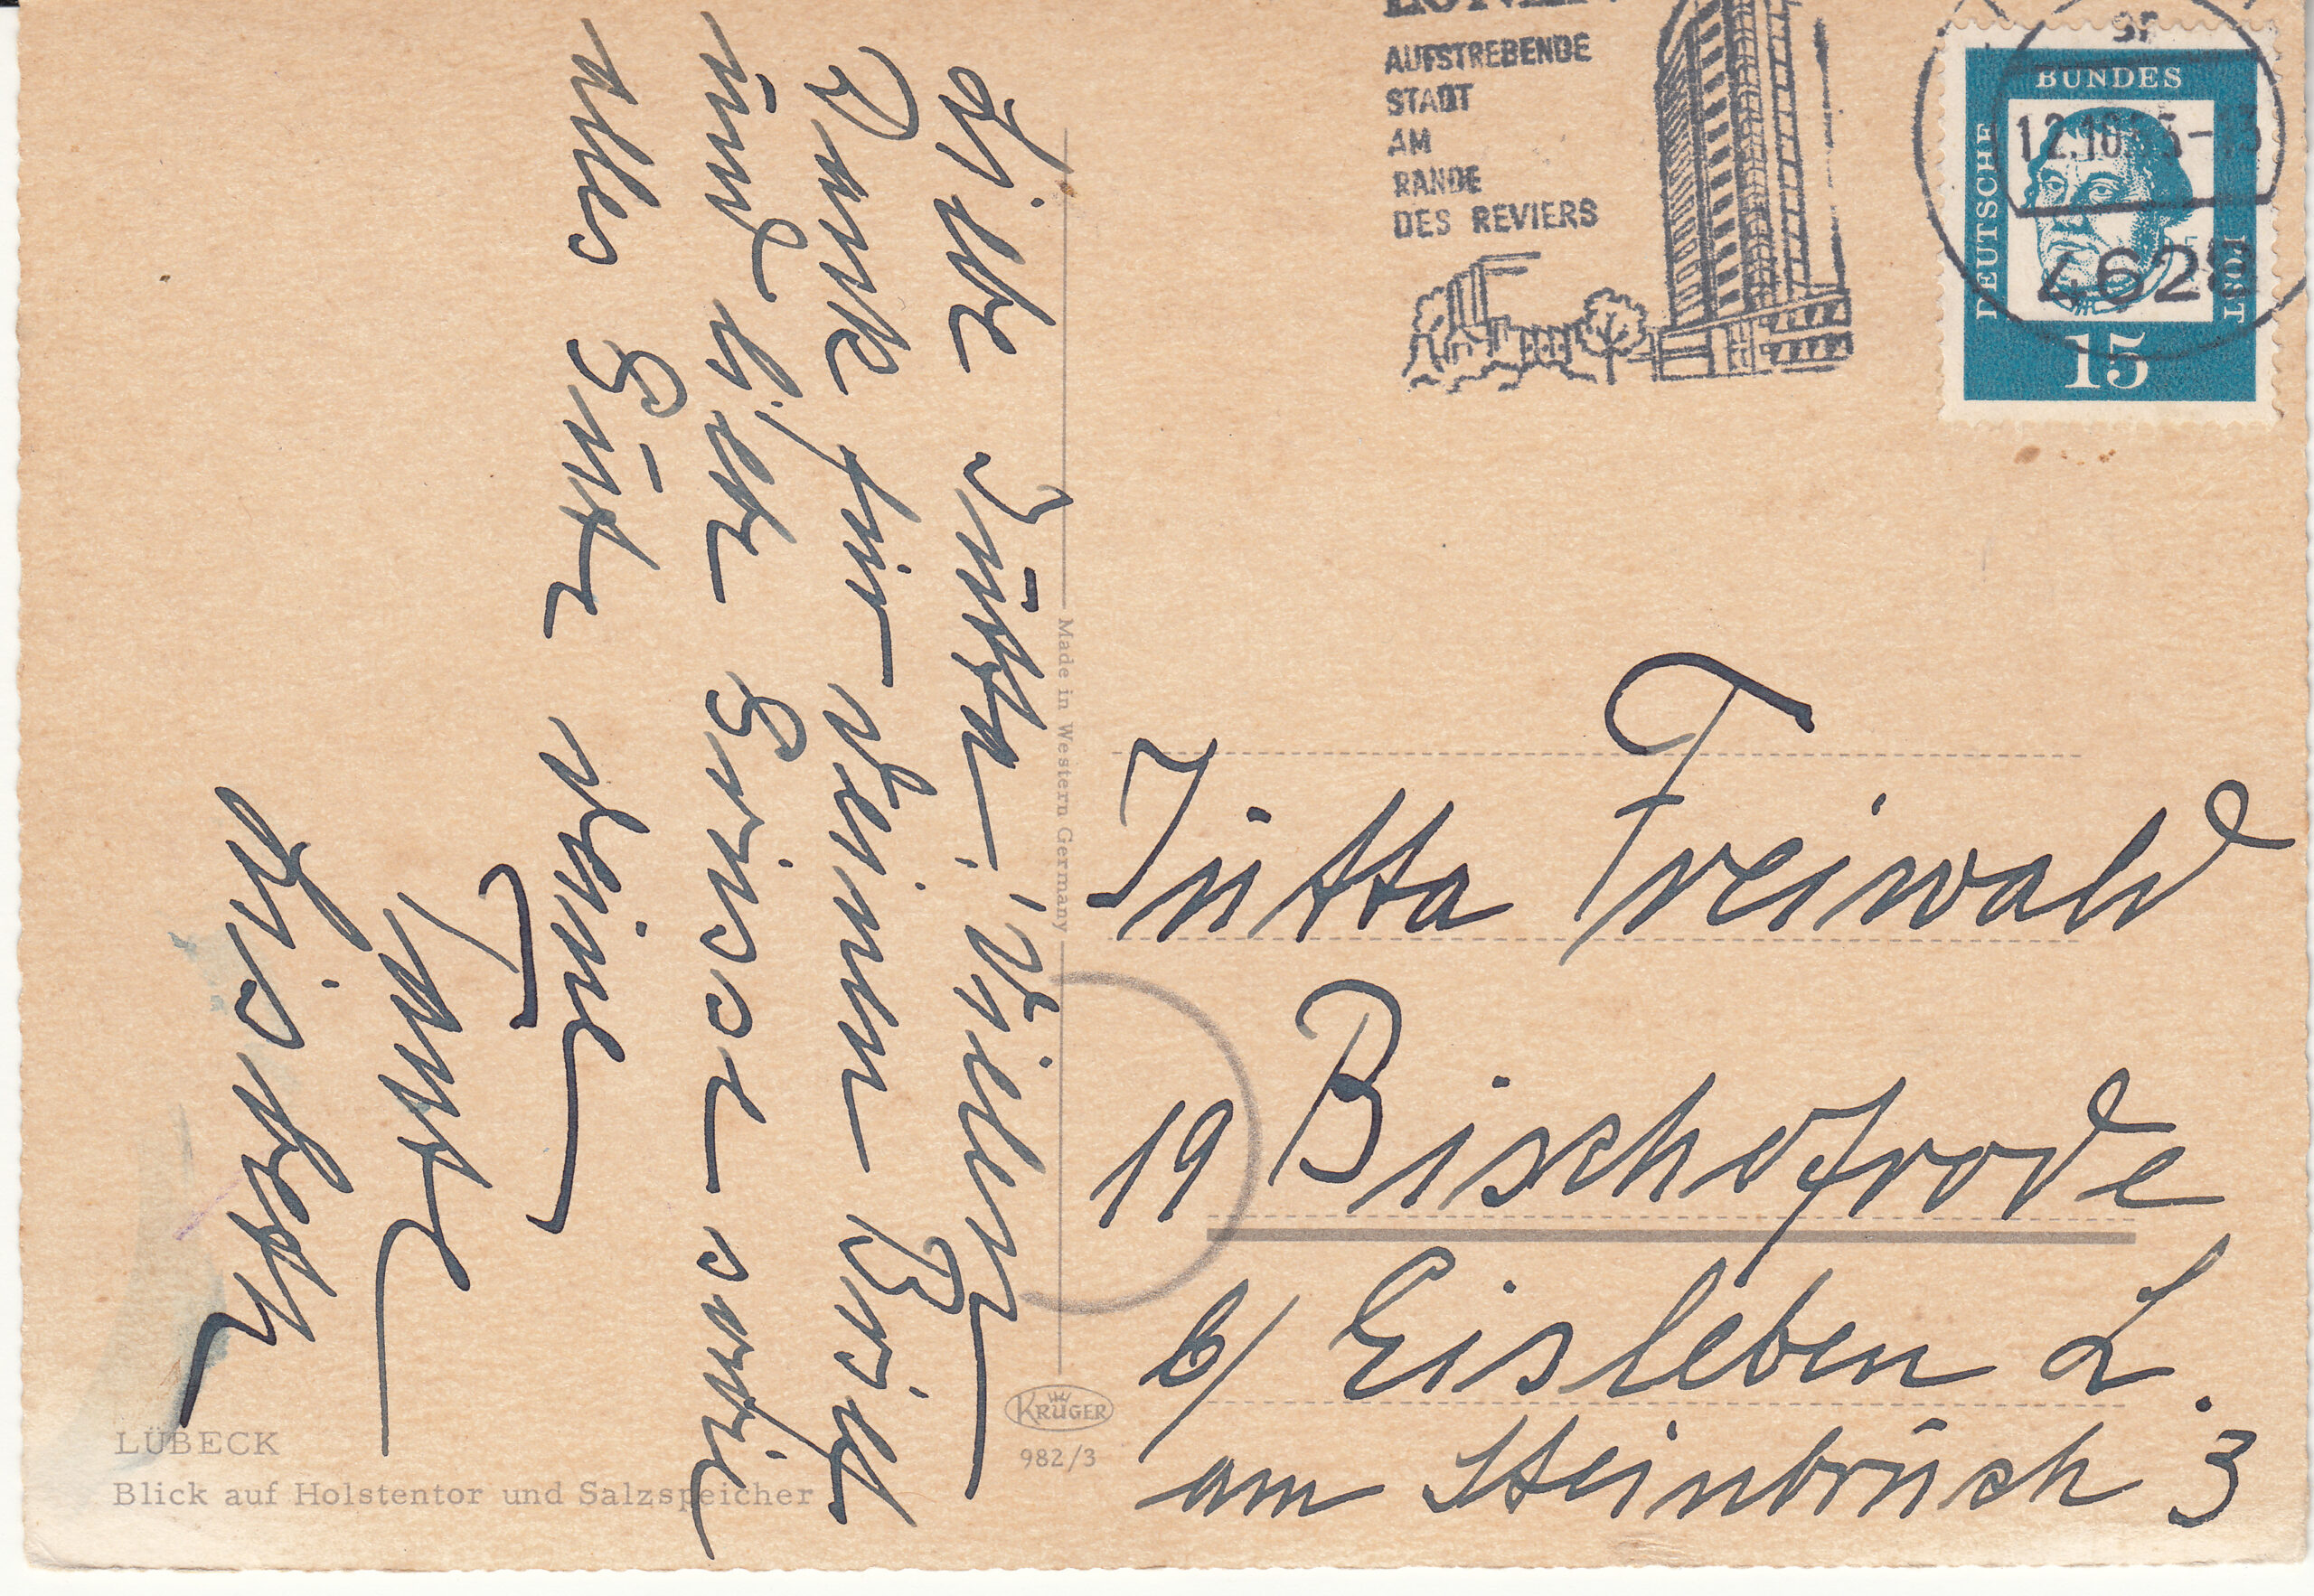 AUFSTREBENDE
STADT
AM
RANDE
DES REVIERS
DEUTSCHE
BUNDES
POST
15
12.10.
4628
Liebe Jutta, Vielen
Dank für deinen Brief
und liebe Grüsse
Alles Gute deine
Tante
Made in Western Germany
Jutta Freiwald
19 Bischofrode
b/ Eisleben L.
am Steinbruch 3
KRÜGER
982/3
LÜBECK
Blick auf Holstentor und Salzspeicher